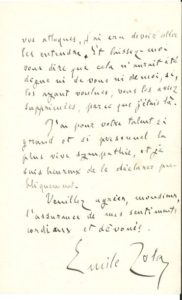 vos attaques, j'ai cru devoir aller
les entendre. Et laissez-moi
vous dire que cela n'aurait été
digne ni de vous ni de moi, si,
les ayant voulues, vous les aviez
supprimées, parce que j'étais là.
J'ai pour votre talent si
grand et si personnel la
plus vive sympathie, et je
suis heureux de le déclarer pu-
bliquement.
Veuillez agréer, monsieur,
l'assurance de mes sentiments
cordiaux et dévoués.
Emile Zola